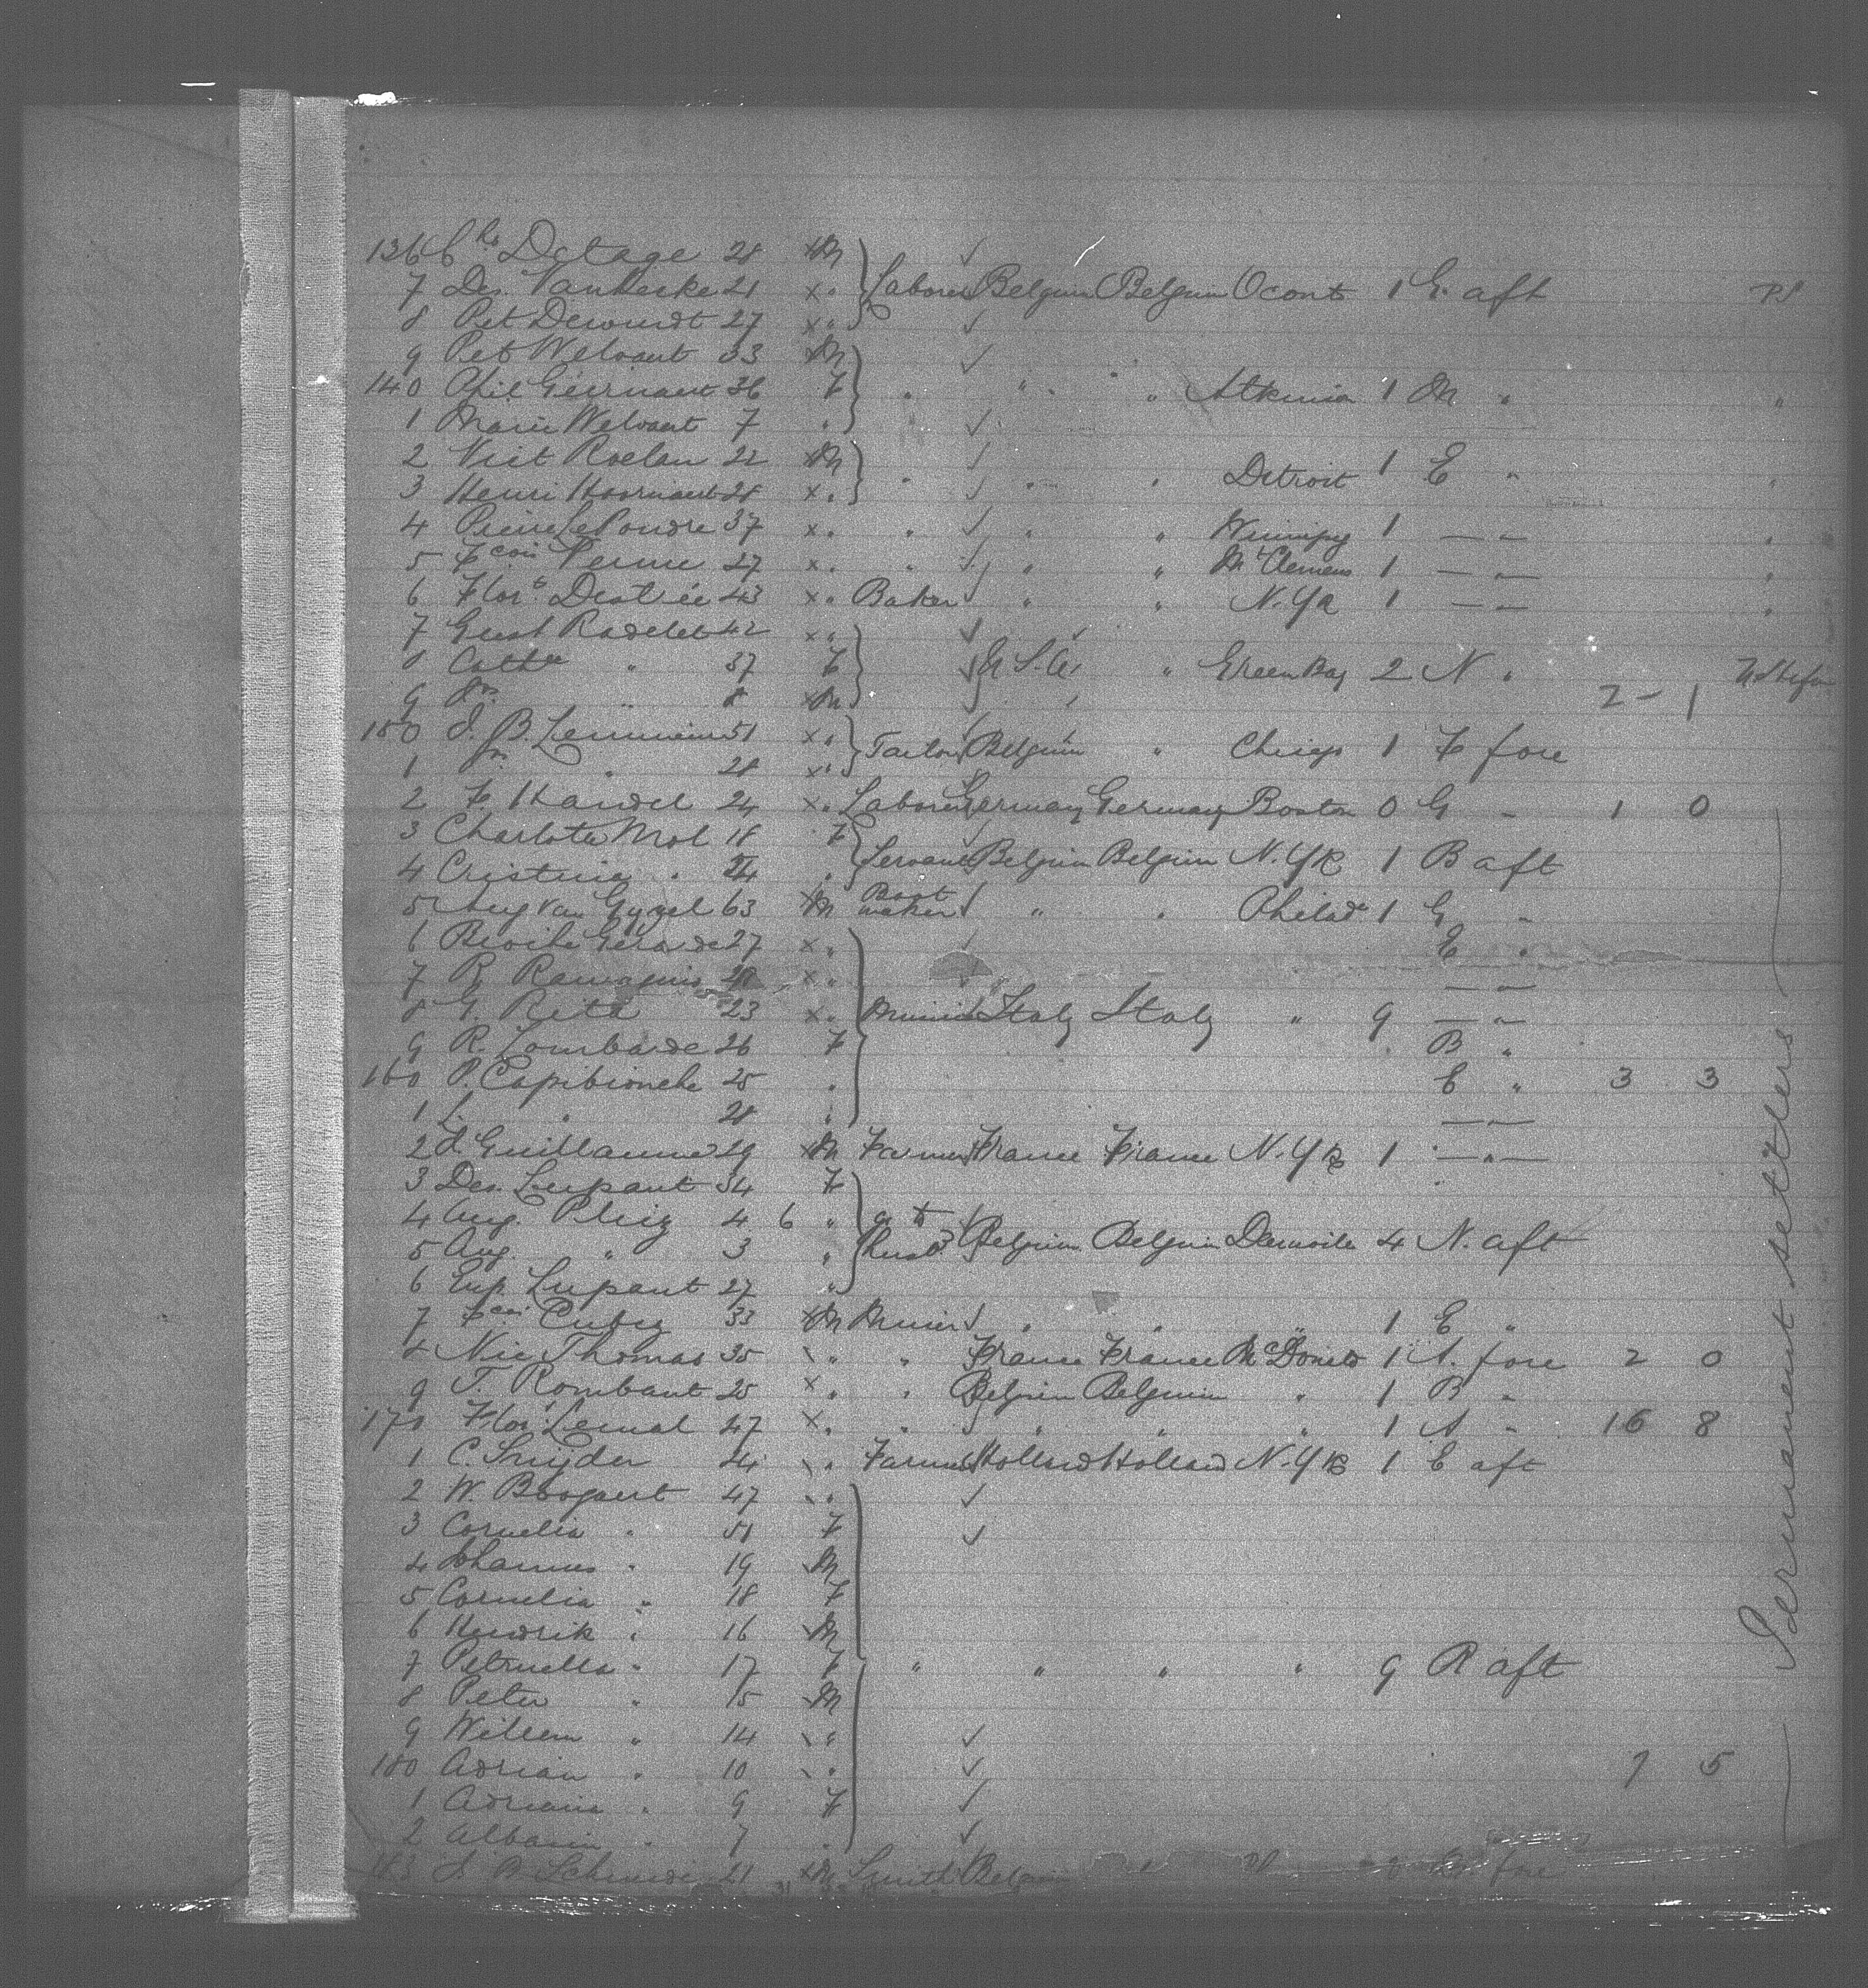 136 Chs Detage 28 x M
7 Des. VanHecke 21 x " Laborer Belgium Belgium Oconto 1 E. aft PS
8 Pet Dewindt 27 x "
9 Pet Welvaert 33 x M
140 Phil Geernaert 36 F " " " Atkinson 1 M " "
1 Marie Welvaert 7 "
2 Vict Roelan 22 x M
3 Henri Hoornaert 28 x " " " " Detroit 1 E " "
4 Pierre LePoudre 37 x " " " " Winnipeg 1 — " — "
5 Fcois Verme 27 x " " " " Mt Clemens 1 — " — "
6 Flors Destrée 43 x " Baker " " N. Yk 1 — " — "
7 Gust Radelet 42 x "
8 Cathe " 37 F U.S.A. " Green Bay 2 N "
9 Jn. " 8 x M 2 — 1
150 J. B. 51 x " Tailor Belgium " Chicago 1 F fore
1 Jn. " 28 x "
2 F. Handel 24 x " Laborer Germany Germany Boston 0 G " 1 0
3 Charlotte Mol 18 F
4 Cristina " 24 " Servant Belgium Belgium N. Yk 1 B aft
5 Aug Van Gyzel 63 x M Boot maker " " Philada 1 G "
6 Gerarde 27 x " E "
7 R. 28 x " — " —
8 G. Rita 23 x " Music Italy Italy " 9 — " —
9 R. Lombarde 26 F B "
160 P. Capibionche 25 " E " 3 3
1 L. " 28 " — " —
2 L. Guillaume 29 x M Farmer France France N. Yk 1 — " —
3 Des. Lupant 34 F
4 Aug. Pleiz 4 6 " go to
5 Aug. " 3 " husbd Belgium Belgium 4 N. aft
6 Eup. Lupant 27 "
7 Fcois 33 x M Miner " " " 1 E "
8 Nic Thomas 35 x " " France France McDonald 1 A. fore 2 0
9 T. Rombaut 25 x " " Belgium Belgium " 1 B "
170 Flor. Lemal 47 x " " " " " 1 A " 16 8
1 C. Snyder 24 x " Farmer Holland Holland N. Yk 1 E aft
2 W. Boogaert 47 x "
3 Cornelia " 51 F
4 Johannes " 19 x M
5 Cornelia " 18 F
6 Hendrik " 16 x M
7 Petronella " 17 F " " " " 9 R aft
8 Peter " 15 x M
9 Willem " 14 x "
180 Adrian " 10 x " 7 5
1 Adriana " 9 F
2 " 7 "
183 21 x M Smith Belgium fore
Permanent settlers